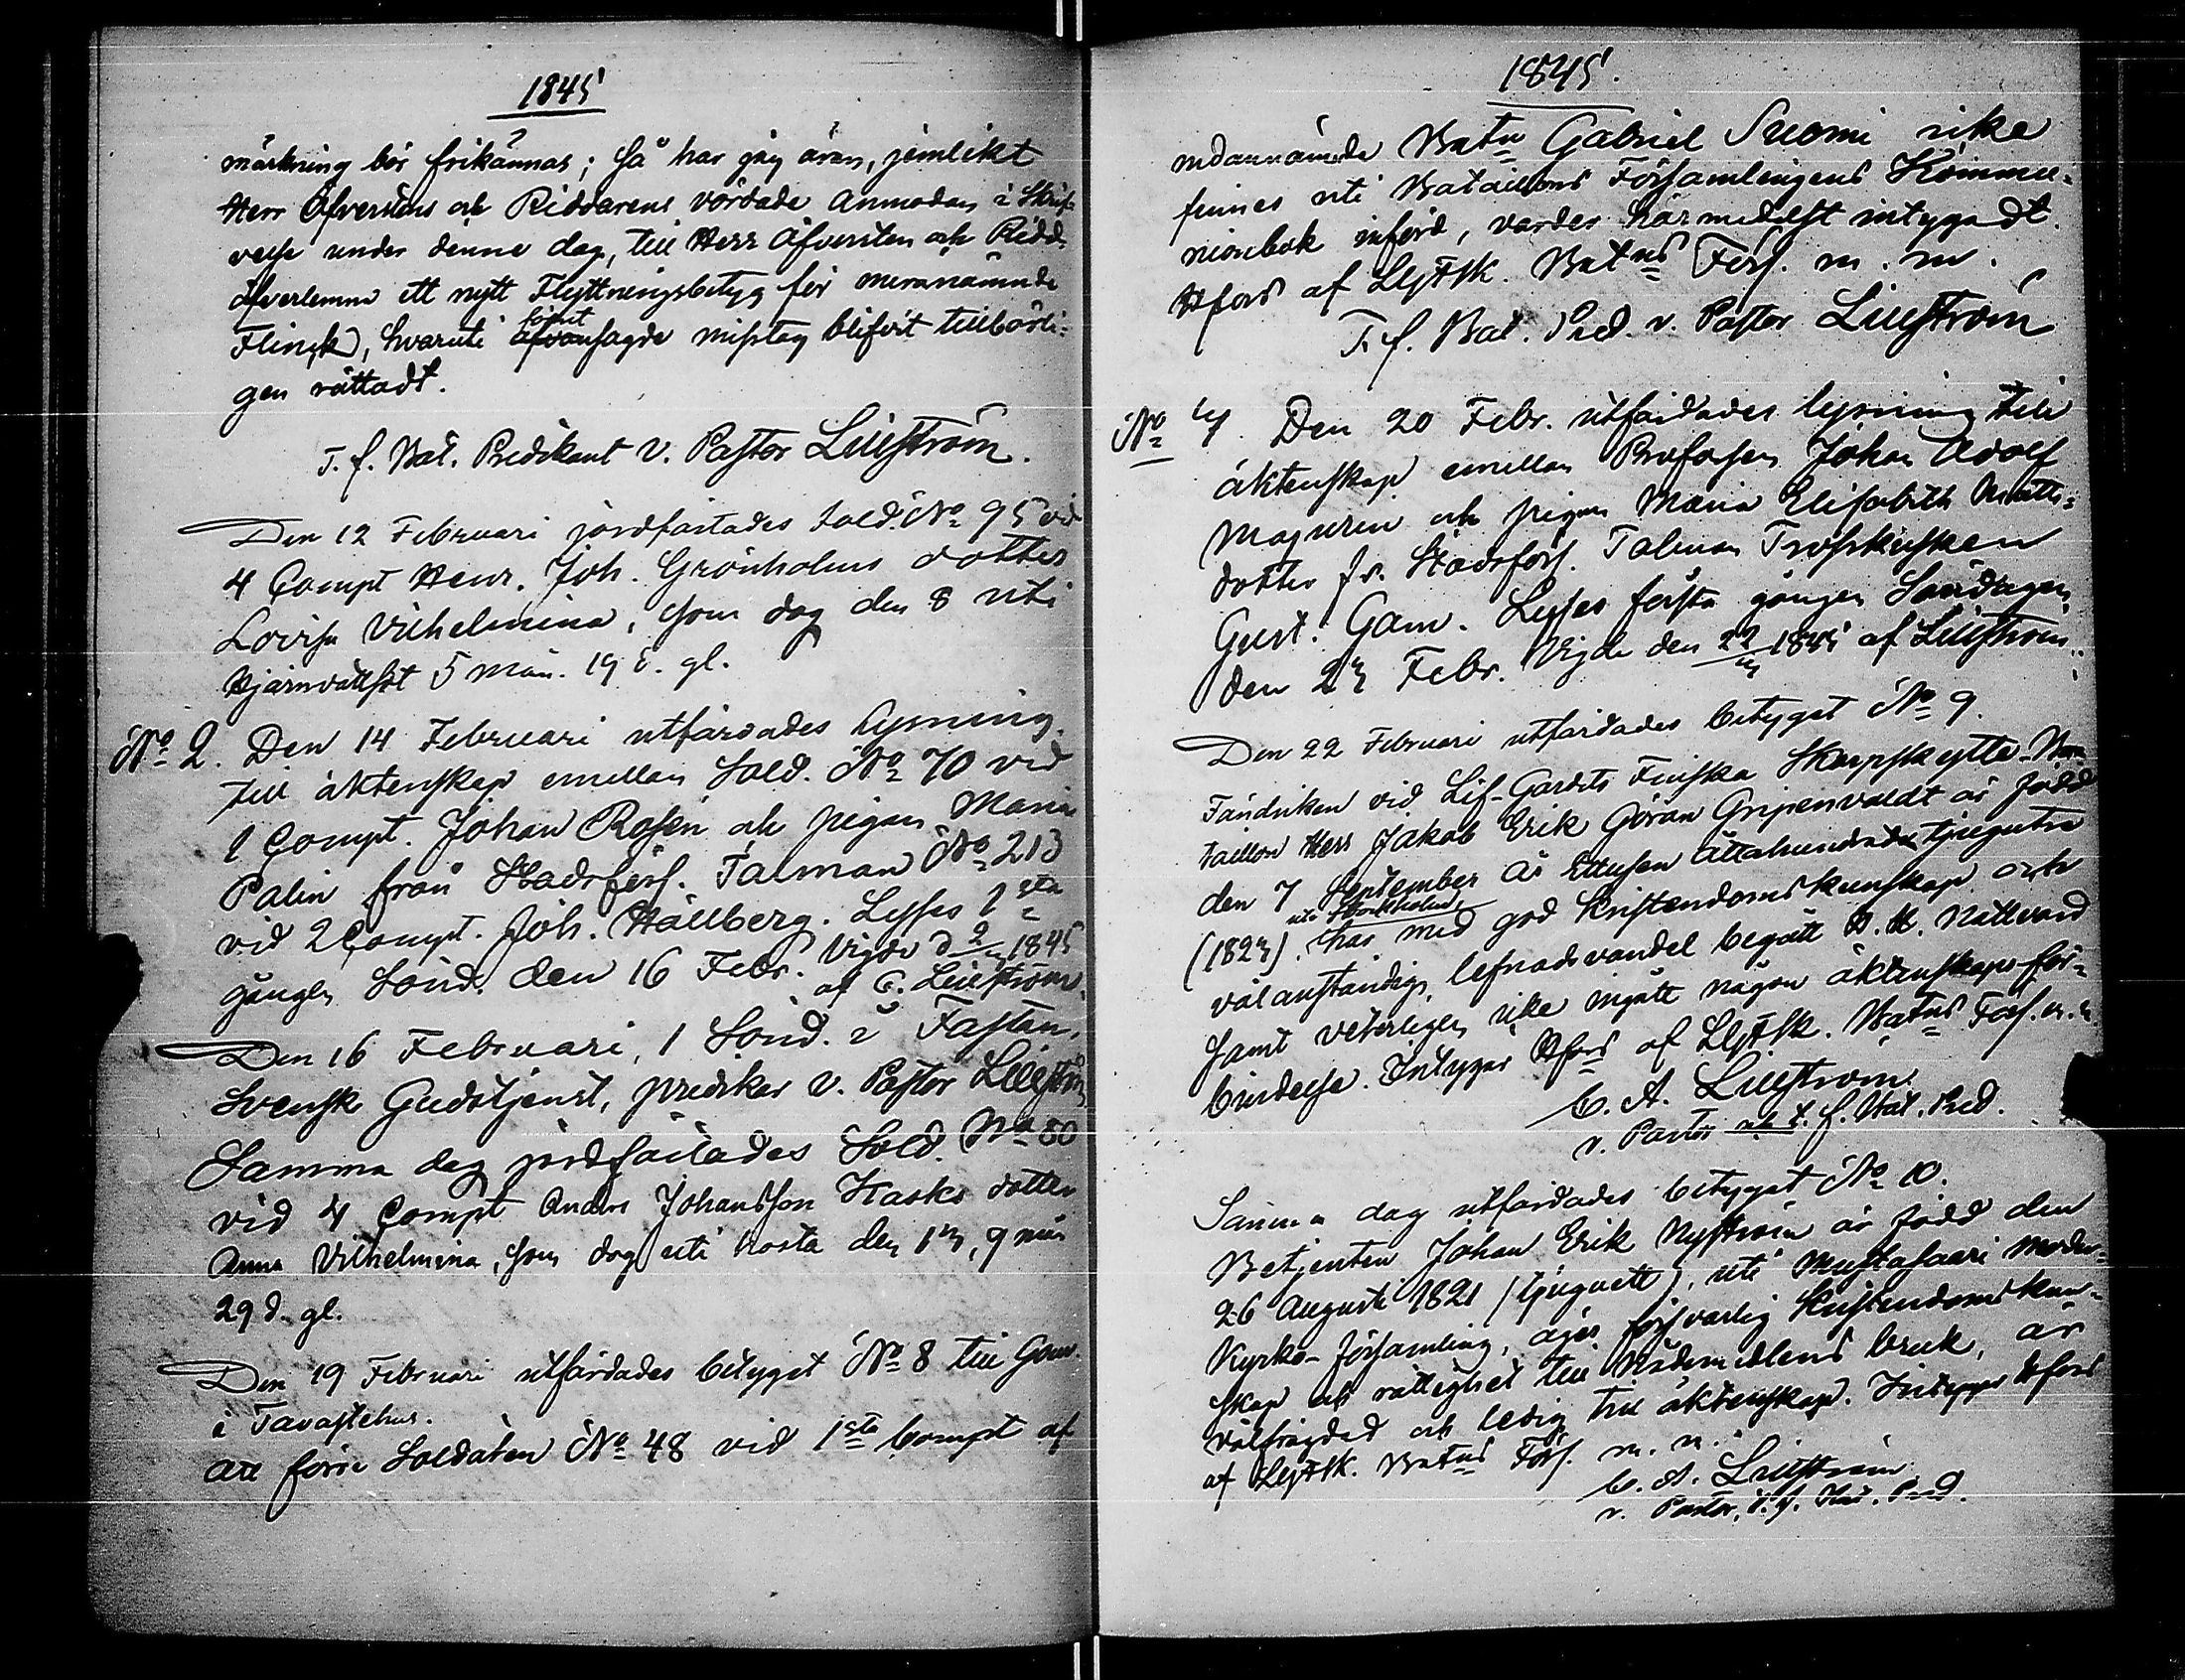 1845
märkning bör frikännas; så har jag äran, jemlikt
Herr Öfverstens och Riddarens vördade anmodan i Skrif-
velse under denne dag, till Herr Öfversten och Ridd.
öfverlemna ett nytt Flyttningsbetyg för meranämnde
Flinck, hvaruti ofvansagde misstag blifvit tillbörli-
gen rättadt.
T. f. Bat. Predikant v. Pastor Liliström.
Den 12 Februari jordfästades Sold. No 95 vid
4 Compt Henr. Joh. Grönholms dotter
Lovisa Vilhelmina, som dog den 8 uti
Hjärnvattsot 5 mån. 19 d. gl.
No 2. Den 14 Februari utfärdades lysning
till äktenskap emellan Sold. No 70 vid
1 Compt. Johan Rosen och pigan Maria
Palin från Stadsförs. Talman No 213
vid 2 Compt. Joh. Hällberg. Lyses 1sta
gången Sönd. den 16 Febr. Vigde d 2/ 1845
af C. Liliström.
Den 16 Februari, 1 Sönd. i Fastan,
Svensk Gudstjenst, prediker v. Pastor Liliström
Samma dag jordfästades Sold. No 80
vid 4 Compt Anders Johansson Hasks dotter
Anna Vilhelmina, som dog uti hosta den 9 mån
29 d. gl.
Den 19 Februari utfärdades betyget No 8 till Gouv.
i Tavastehus.
Att förre Soldaten No 48 vid 1sta Compt af
1845.
nedannämde Batn Gabriel Suomi icke
finnes uti Bataillons Församlingens Kommu-
nionbok införd, varder härmedelst intygadt.
Hfors af LGFSk. Batns Förs. m. m.
T. f. Bat. Pred. v. Pastor Liliström
No Den 20 Febr. utfärdades lysning till
äktenskap emellan Profossen Johan Adolf
Magurin och pigan Maria Elisabeth Matts-
dotter fr. Stadsförs. Talman Trosskusken
Gust. Gam. Lyses första gången Söndagen
den 23 Febr. Vigde den 1845 af Liliström.
Den 22 Februari utfärdades betyget No 9.
Fändriken vid Lif-Gardets Finska Skarpskytte-Ba-
taillon Herr Jakob Erik Göran Gripenvaldt är född
den 7 September år Ettusen åttahundrade tjugutre
uti Stockholm,
(1823), har med god Kristendomskunskap och
välanständig lefnadsvandel begått H. H. Nattvard
samt veterligen icke ingått någon äktenskaps för-
bindelse. Intygar Hfors af LGFSk. Batns Förs. m. m.
C. A. Liliström
v. Pastor och t. f. Bat. Pred.
Samma dag utfärdades betyget No 10.
Betjenten Johan Erik Nyström är född den
26 Augusti 1821 (tjuguett), uti Mustasaari Moder-
Kyrko-församling, äger försvarlig Kristendomskun-
skap och rättighet till Nådemedlens bruk, är
välfrägdad och ledig till äktenskap. Intygar Hfors
af LGFSk. Batns Förs. m. m.
C. A. Liliström
v. Pastor, t. f. Bat. Pred.